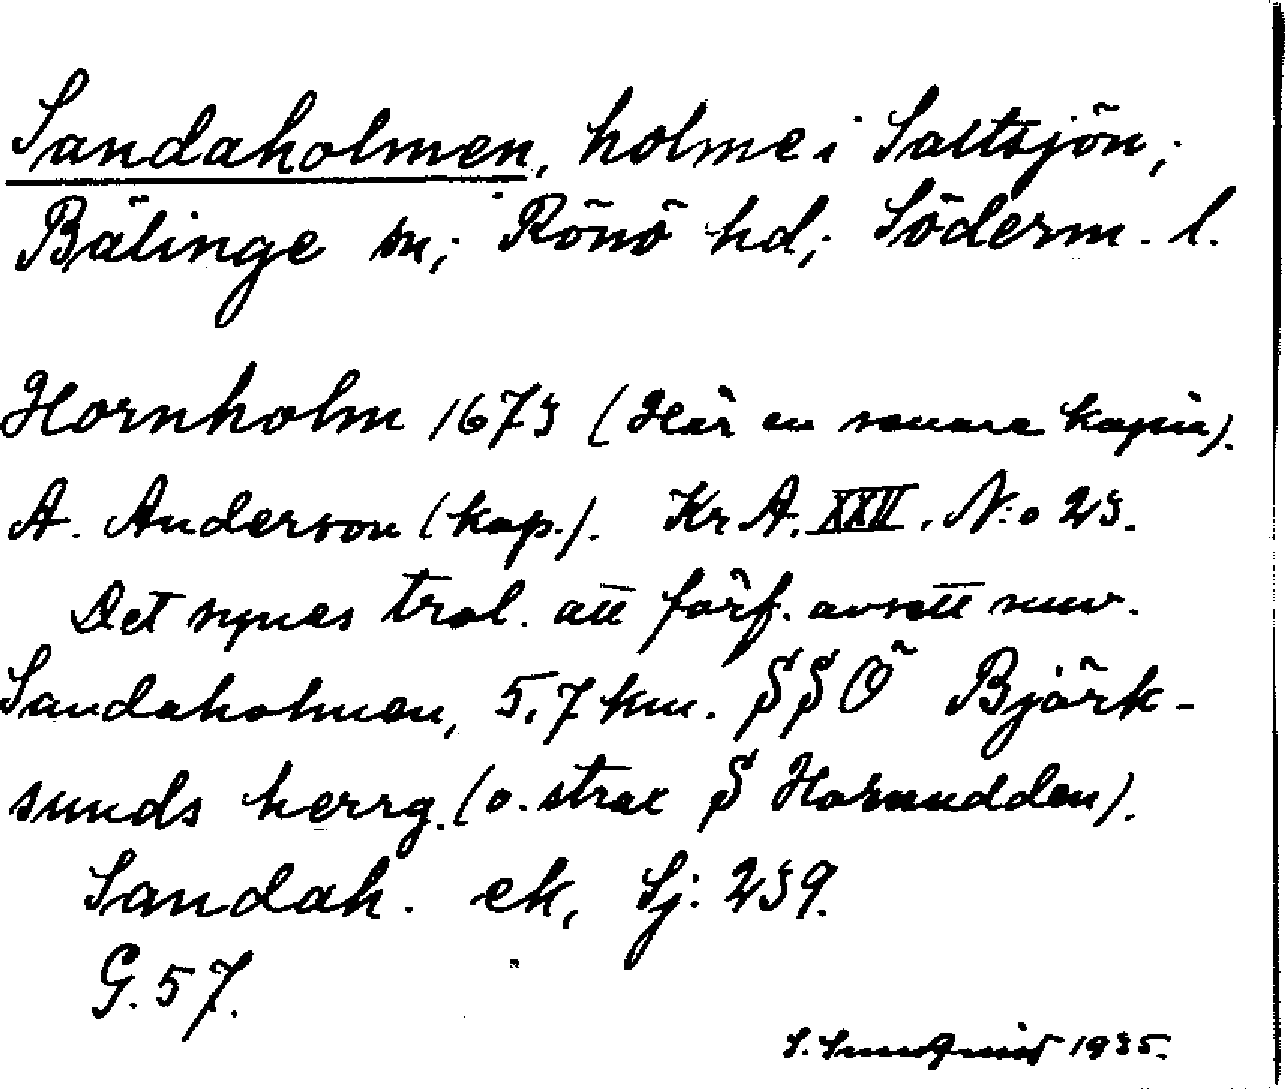 Sandaholmen, holme i Saltsjön;
Bälinge sn; Rönö hd; Söderm. l.
Hornholm 1673 (Här en senare kopia).
A. Anderson (kop.). Kr A. XXII. N:o 23.
Det synes trol. att förf. avsett nuv.
Sandaholmen, 5,7 km. SSÖ Björk-
sunds herrg. (o. strax S Hornudden).
Sandah. ek, Sj: 239.
G. 57.
S. Sundqvist 1935.